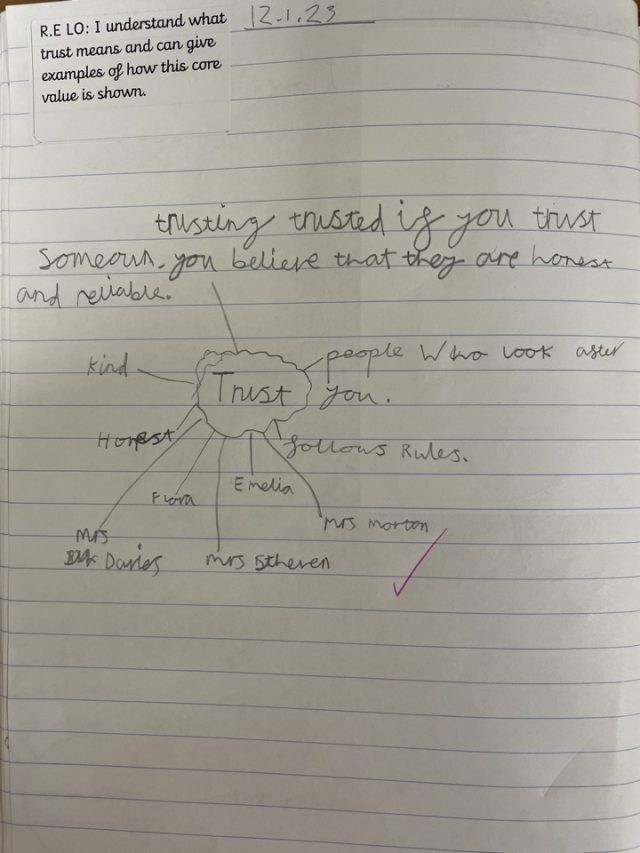 R.E LO: I understand what
trust means and can give
examples of how this core
value is shown.
12.1.23
trusting trusted if you trust
someoun. you believe that they are honest
and reliable.
Kind
people Who look after
you.
Trust
Honest
follows Rules.
Flora
Emelia
Mrs Morton
Mrs
Davies
Mrs Stheven